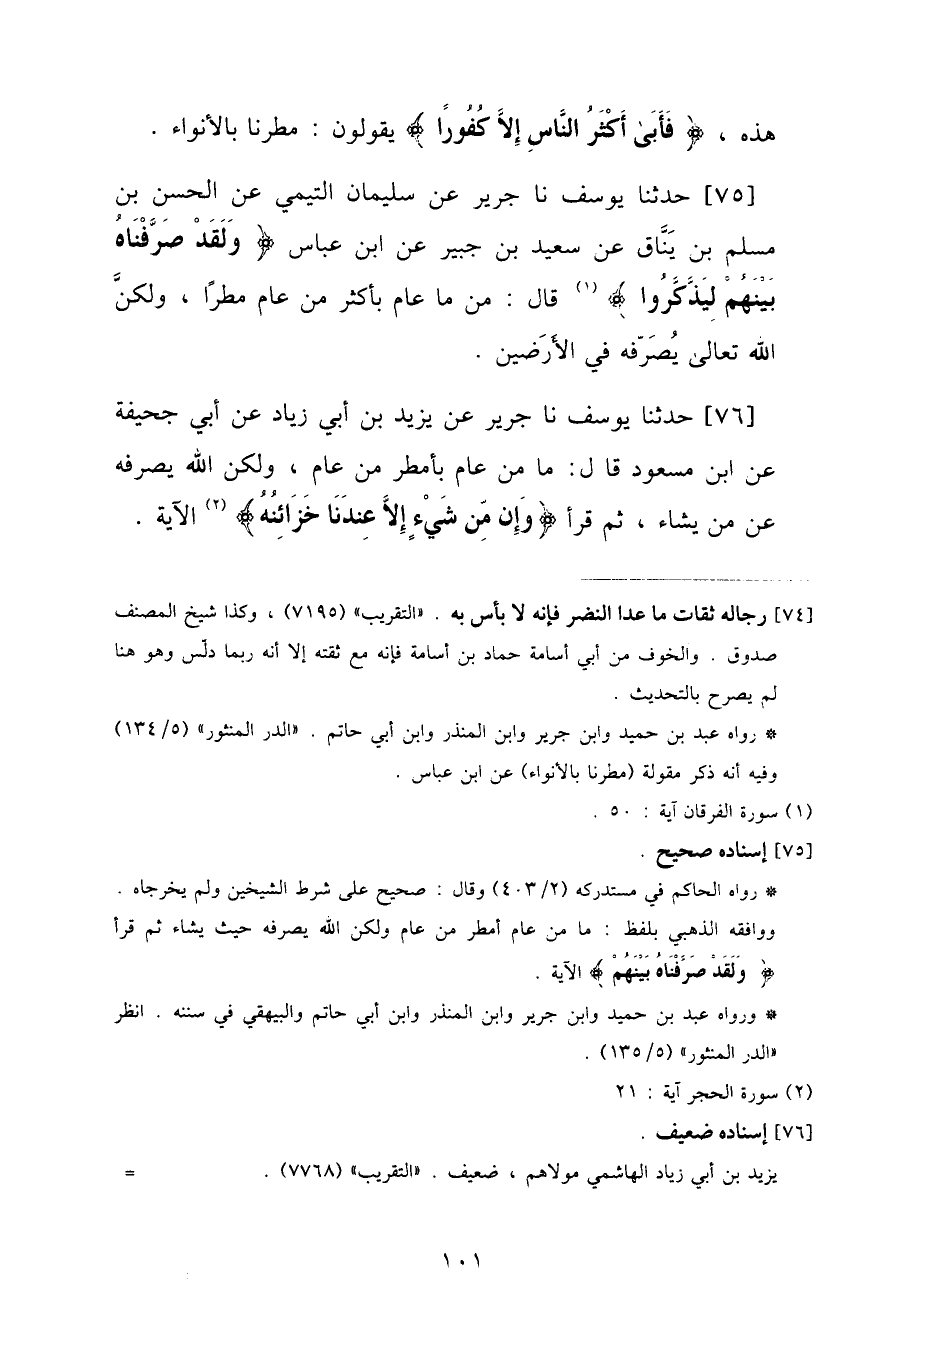 هذه ، ﴿ فَأَبَىٰ أَكْثَرُ النَّاسِ إِلاَّ كُفُوراً ﴾ يقولون : مطرنا بالأنواء .
[٧٥] حدثنا يوسف نا جرير عن سليمان التيمي عن الحسن بن
مسلم بن يَنَّاق عن سعيد بن جبير عن ابن عباس ﴿ وَلَقَدْ صَرَّفْنَاهُ
بَيْنَهُمْ لِيَذَّكَّرُوا ﴾ (١) قال : من ما عام بأكثر من عام مطرًا ، ولكنَّ
الله تعالىٰ يُصَرِّفه في الأَرَضين .
[٧٦] حدثنا يوسف نا جرير عن يزيد بن أبي زياد عن أبي جحيفة
عن ابن مسعود قا ل: ما من عام بأمطر من عام ، ولكن الله يصرفه
عن من يشاء ، ثم قرأ ﴿ وَإِن مِّن شَيْءٍ إِلاَّ عِندَنَا خَزَائِنُهُ ﴾ (٢) الآية .
[٧٤] رجاله ثقات ما عدا النضر فإنه لا بأس به . «التقريب» (٧١٩٥) ، وكذا شيخ المصنف
صدوق . والخوف من أبي أسامة حماد بن أسامة فإنه مع ثقته إلا أنه ربما دلّس وهو هنا
لم يصرح بالتحديث .
* رواه عبد بن حميد وابن جرير وابن المنذر وابن أبي حاتم . «الدر المنثور» (٥/ ١٣٤)
وفيه أنه ذكر مقولة (مطرنا بالأنواء) عن ابن عباس .
(١) سورة الفرقان آية : ٥٠ .
[٧٥] إسناده صحيح .
* رواه الحاكم في مستدركه (٢/ ٤٠٣) وقال : صحيح على شرط الشيخين ولم يخرجاه .
ووافقه الذهبي بلفظ : ما من عام أمطر من عام ولكن الله يصرفه حيث يشاء ثم قرأ
﴿ وَلَقَدْ صَرَّفْنَاهُ بَيْنَهُمْ ﴾ الآية .
* ورواه عبد بن حميد وابن جرير وابن المنذر وابن أبي حاتم والبيهقي في سننه . انظر
«الدر المنثور» (٥/ ١٣٥) .
(٢) سورة الحجر آية : ٢١
[٧٦] إسناده ضعيف .
يزيد بن أبي زياد الهاشمي مولاهم ، ضعيف . «التقريب» (٧٧٦٨) . =
١٠١